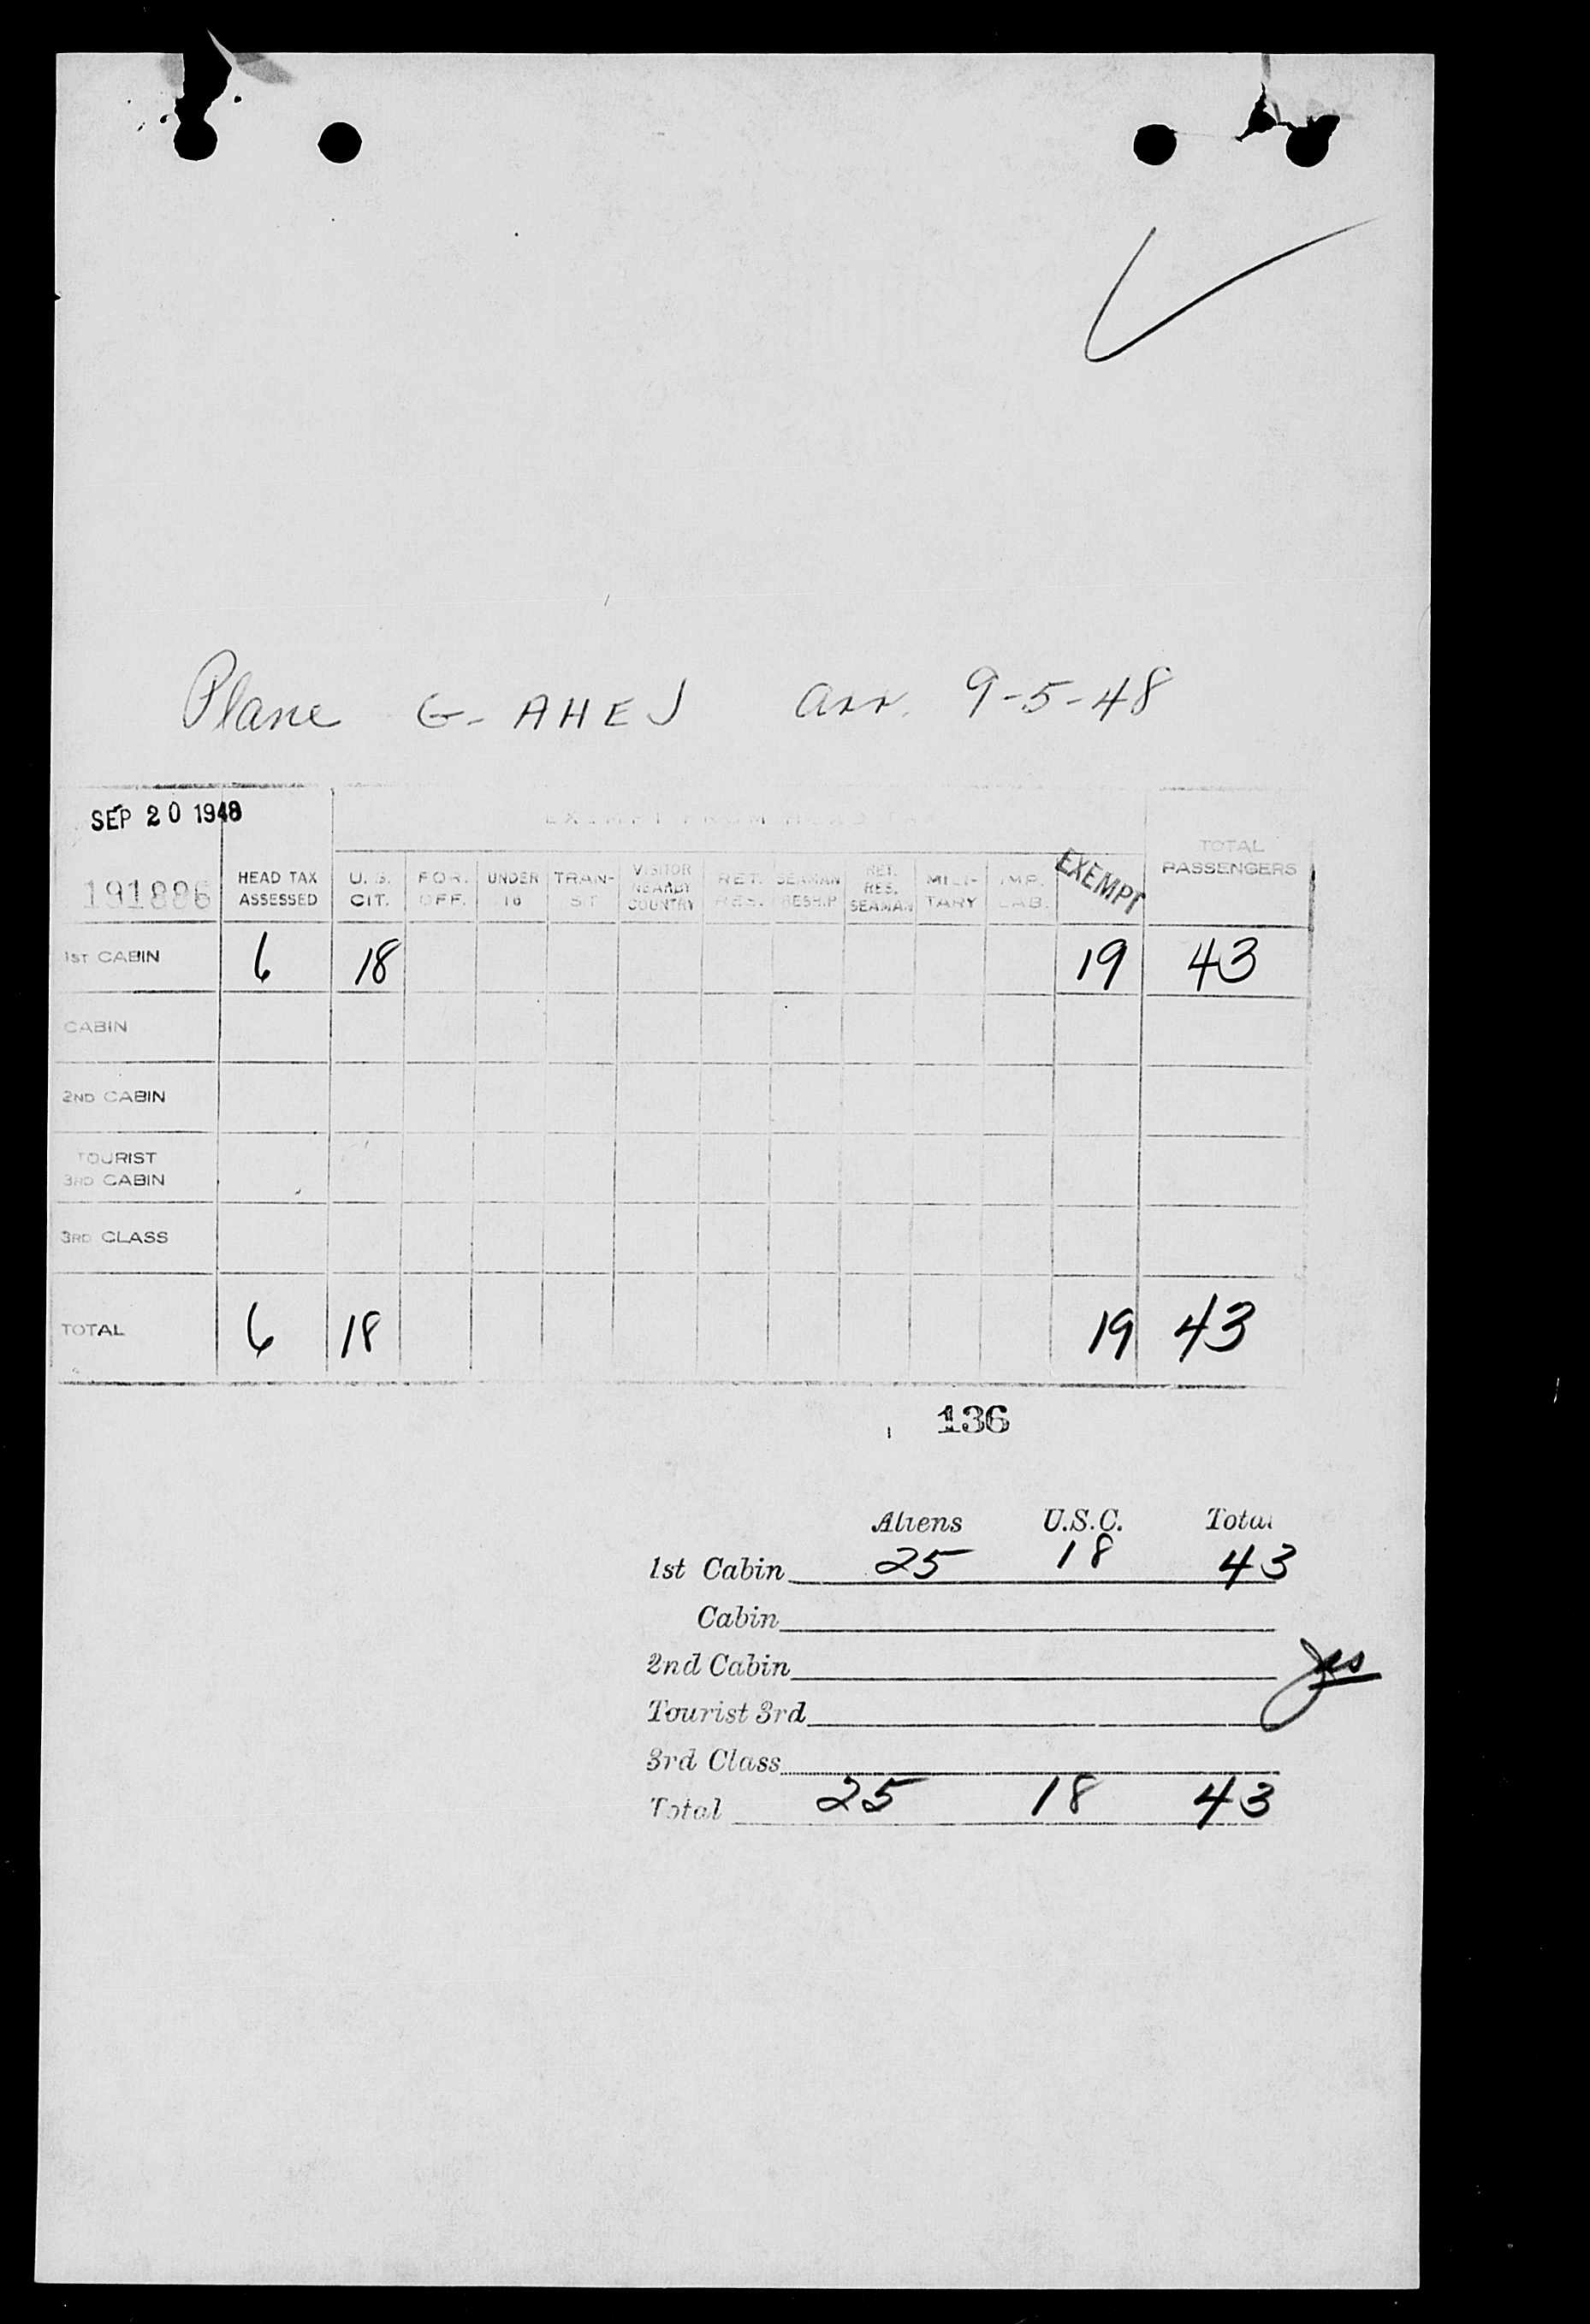 Plane G-AHEJ arr. 9-5-48
SEP 20 1948
EXEMPT FROM HEAD
191886
HEAD TAX ASSESSED
U.S. CIT.
FOR. OFF.
UNDER 16
TRAN-SIT
VISITOR NEARBY COUNTRY
RET. RES.
SEAMAN RESHIP
RET. RES. SEAMAN
MILI-TARY
IMP. LAB.
EXEMPT
TOTAL PASSENGERS
1ST CABIN 6 18 19 43
CABIN
2ND CABIN
TOURIST
3RD CABIN
3RD CLASS
TOTAL 6 18 19 43
136
Aliens U.S.C. Total
1st Cabin 25 18 43
Cabin
2nd Cabin
Tourist 3rd
3rd Class
Total 25 18 43